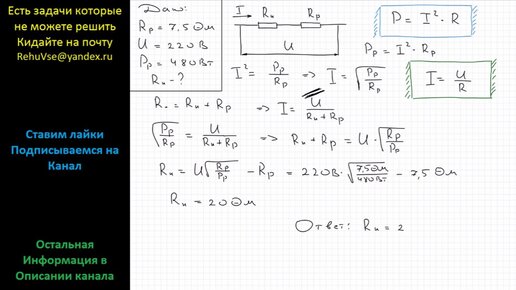 Есть задачи которые
не можете решить
Кидайте на почту
RehuVse@yandex.ru
Ставим лайки
Подписываемся на
Канал
Остальная
Информация в
Описании канала
Дано:
Rр = 7,5 Ом
U = 220 В
Pр = 480 Вт
Rн - ?
I Rн Rр
U
P = I² · R
Pр = I² · Rр
I² = Pр/Rр => I = √(Pр/Rр)
I = U/R
R = Rн + Rр => I = U/(Rн + Rр)
√(Pр/Rр) = U/(Rн + Rр) => Rн + Rр = U · √(Rр/Pр)
Rн = U√(Rр/Pр) - Rр = 220В · √(7,5 Ом/480 Вт) - 7,5 Ом
Rн = 20 Ом
Ответ: Rн = 2